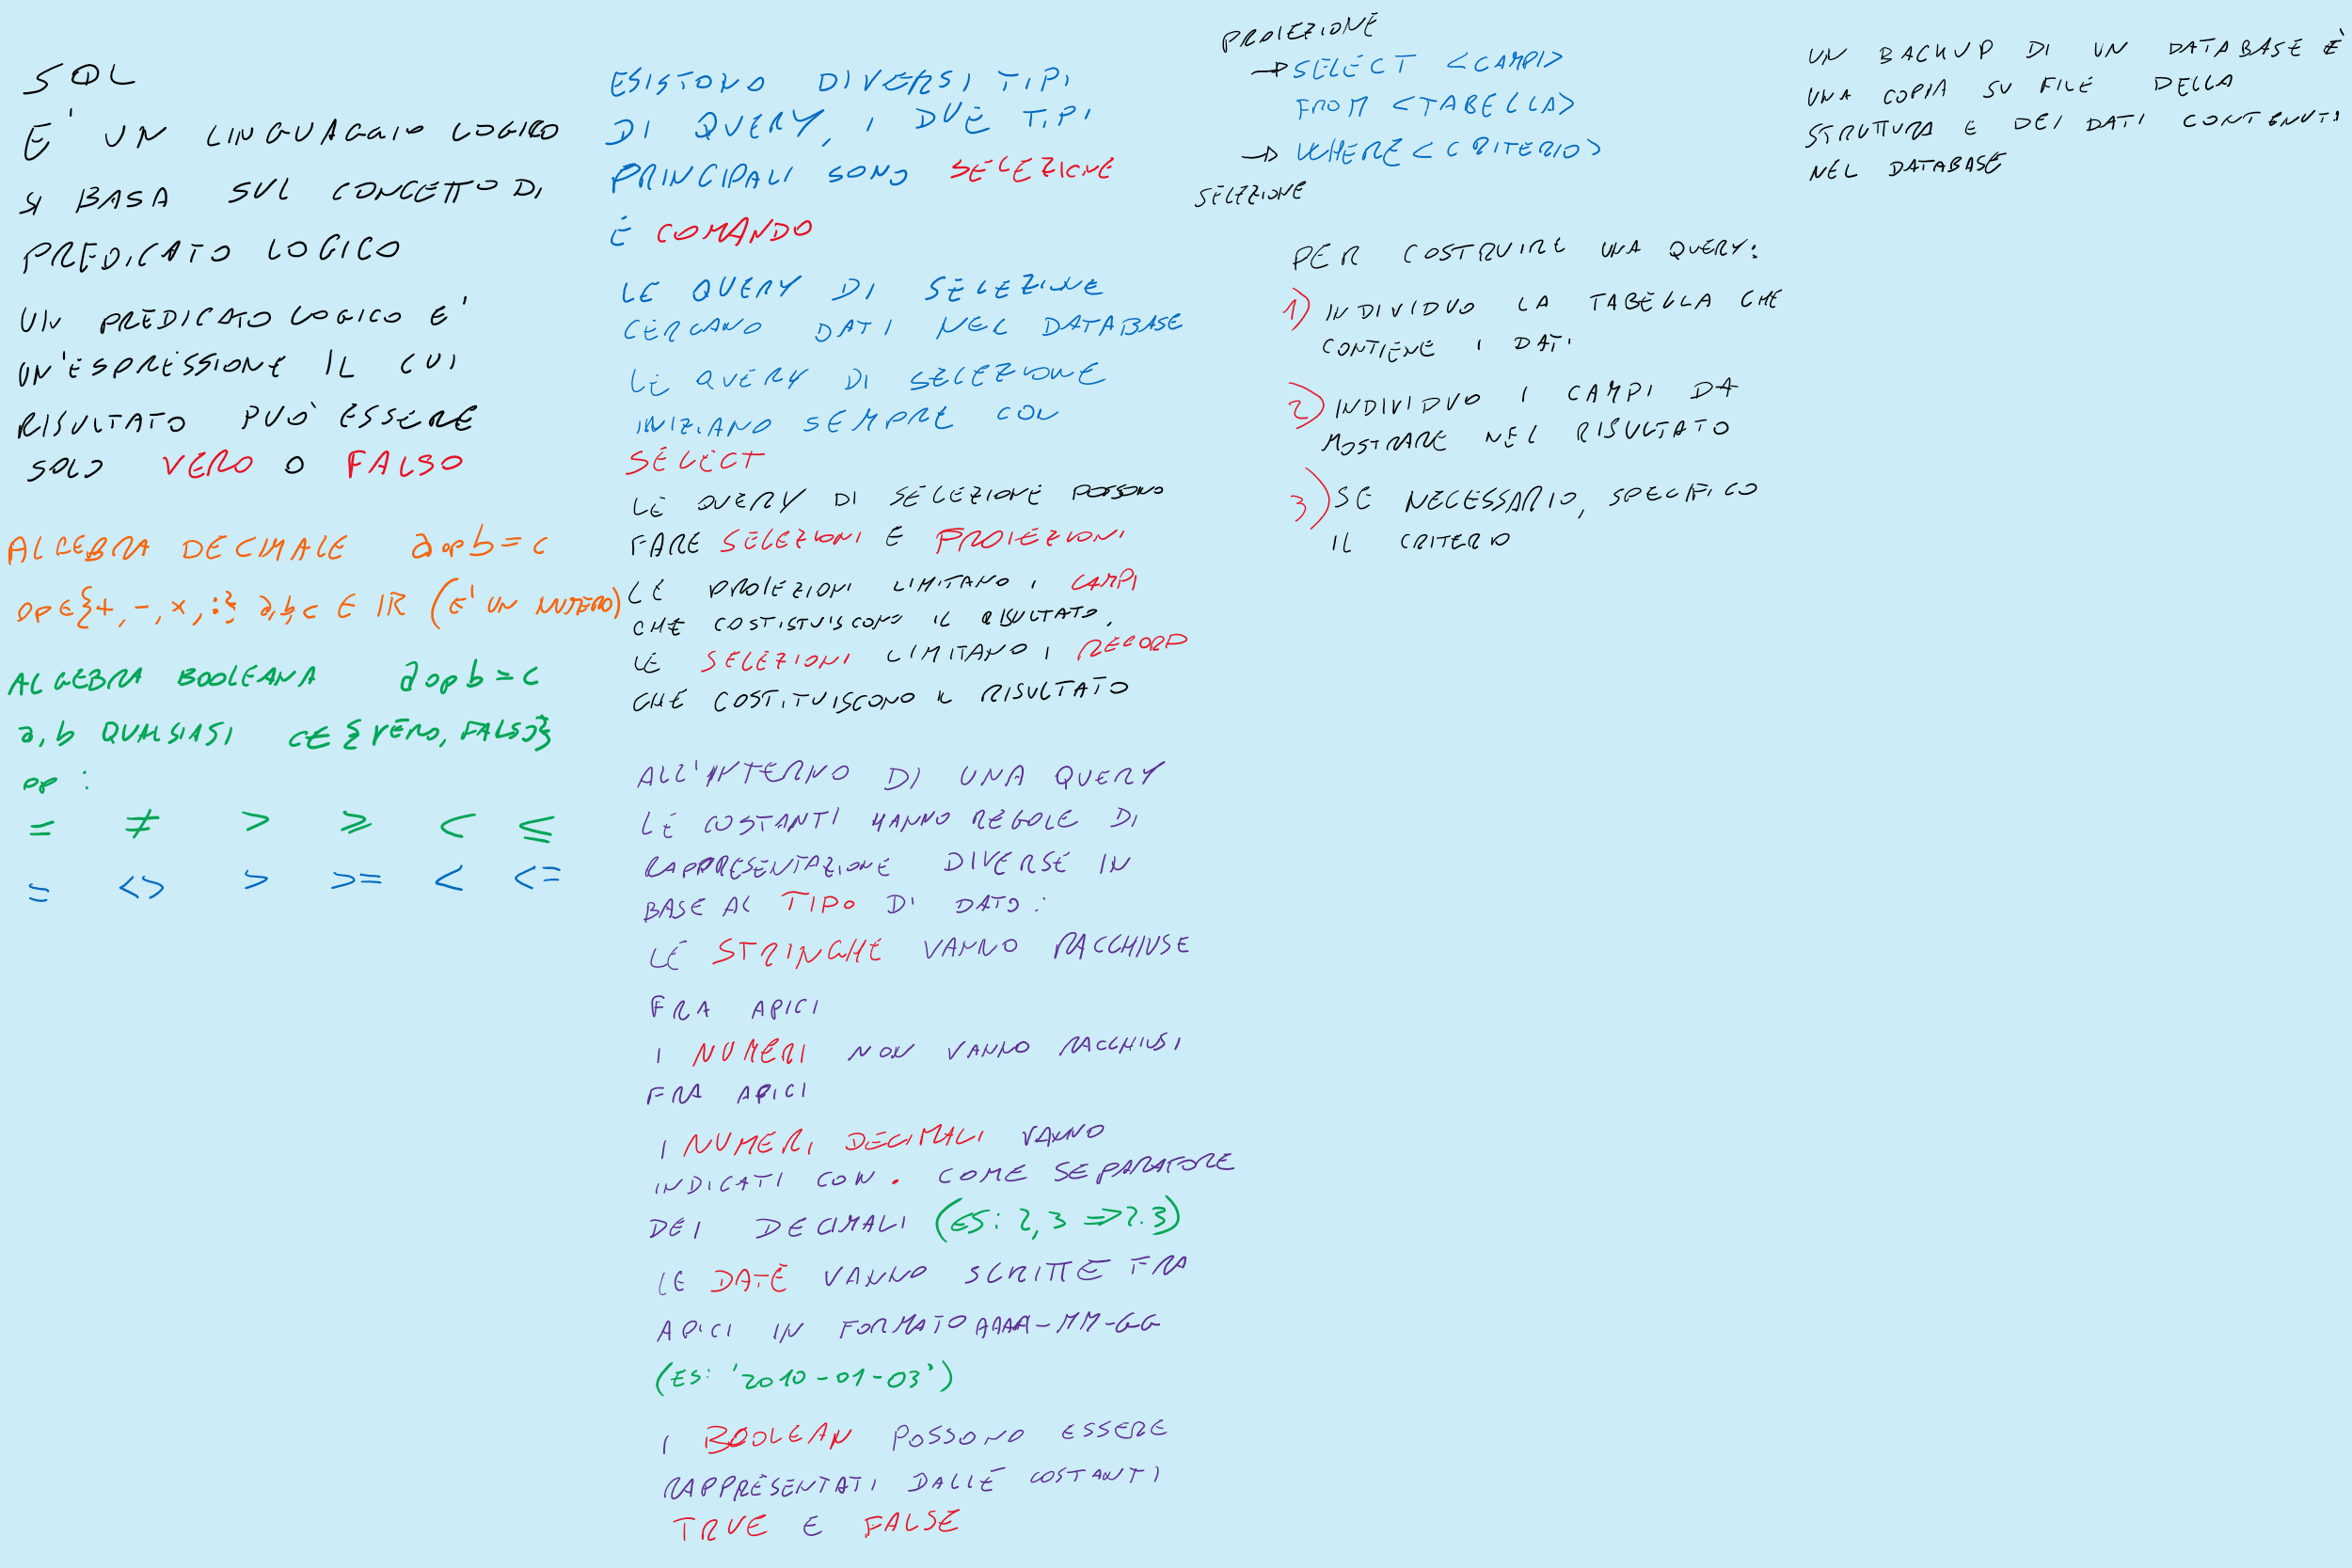 SQL
E' UN LINGUAGGIO LOGICO
SI BASA SUL CONCETTO DI
PREDICATO LOGICO
UN PREDICATO LOGICO E'
UN'ESPRESSIONE IL CUI
RISULTATO PUÒ ESSERE
SOLO VERO O FALSO
ALGEBRA DECIMALE a op b = c
op ∈ {+, -, x, :} a, b, c ∈ IR (E' UN NUMERO)
ALGEBRA BOOLEANA a op b = c
a, b QUALSIASI c ∈ {VERO, FALSO}
op :
= ≠ > ⩾ < ≤
= <> > >= < <=
ESISTONO DIVERSI TIPI
DI QUERY, I DUE TIPI
PRINCIPALI SONO SELEZIONE
E COMANDO
LE QUERY DI SELEZIONE
CERCANO DATI NEL DATABASE
LE QUERY DI SELEZIONE
INIZIANO SEMPRE CON
SELECT
LE QUERY DI SELEZIONE POSSONO
FARE SELEZIONI E PROIEZIONI
LE PROIEZIONI LIMITANO I CAMPI
CHE COSTISTUISCONO IL RISULTATO.
LE SELEZIONI LIMITANO I RECORD
CHE COSTITUISCONO IL RISULTATO
ALL'INTERNO DI UNA QUERY
LE COSTANTI HANNO REGOLE DI
RAPPRESENTAZIONE DIVERSE IN
BASE AL TIPO DI DATO:
LE STRINGHE VANNO RACCHIUSE
FRA APICI
I NUMERI NON VANNO RACCHIUSI
FRA APICI
I NUMERI DECIMALI VANNO
INDICATI CON . COME SEPARATORE
DEI DECIMALI (ES: 2,3 => 2.3)
LE DATE VANNO SCRITTE FRA
APICI IN FORMATO AAAA-MM-GG
(ES: '2010-01-03')
I BOOLEAN POSSONO ESSERE
RAPPRESENTATI DALLE COSTANTI
TRUE E FALSE
PROIEZIONE
→ SELECT <CAMPI>
FROM <TABELLA>
→ WHERE <CRITERIO>
SELEZIONE
PER COSTRUIRE UNA QUERY:
1) INDIVIDUO LA TABELLA CHE
CONTIENE I DATI
2) INDIVIDUO I CAMPI DA
MOSTRARE NEL RISULTATO
3) SE NECESSARIO, SPECIFICO
IL CRITERIO
UN BACKUP DI UN DATABASE È
UNA COPIA SU FILE DELLA
STRUTTURA E DEI DATI CONTENUTI
NEL DATABASE